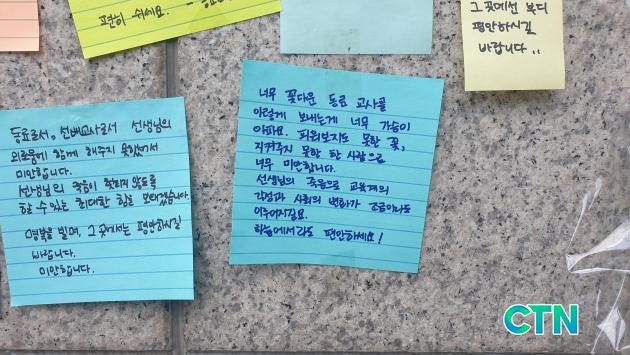 편히 쉬세요.
그곳에선 부디
편안하시길
바랍니다..
동료로서, 선배교사로서 선생님의
외로움에 함께 해주지 못했어서
미안합니다.
선생님의 죽음이 헛되지 않도록
할 수 있는 최대한 힘을 보태겠습니다.
명복을 빌며, 그 곳에서는 평안하시길
바랍니다.
미안합니다.
너무 꽃다운 동료 교사를
이렇게 보내는게 너무 가슴이
아파요. 피워보지도 못한 꽃,
지켜주지 못한 한 사람으로
너무 미안합니다.
선생님의 죽음으로 교육계의
각성과 사회의 변화가 조금이라도
이루어지길요.
하늘에서라도 편안하세요!
CTN